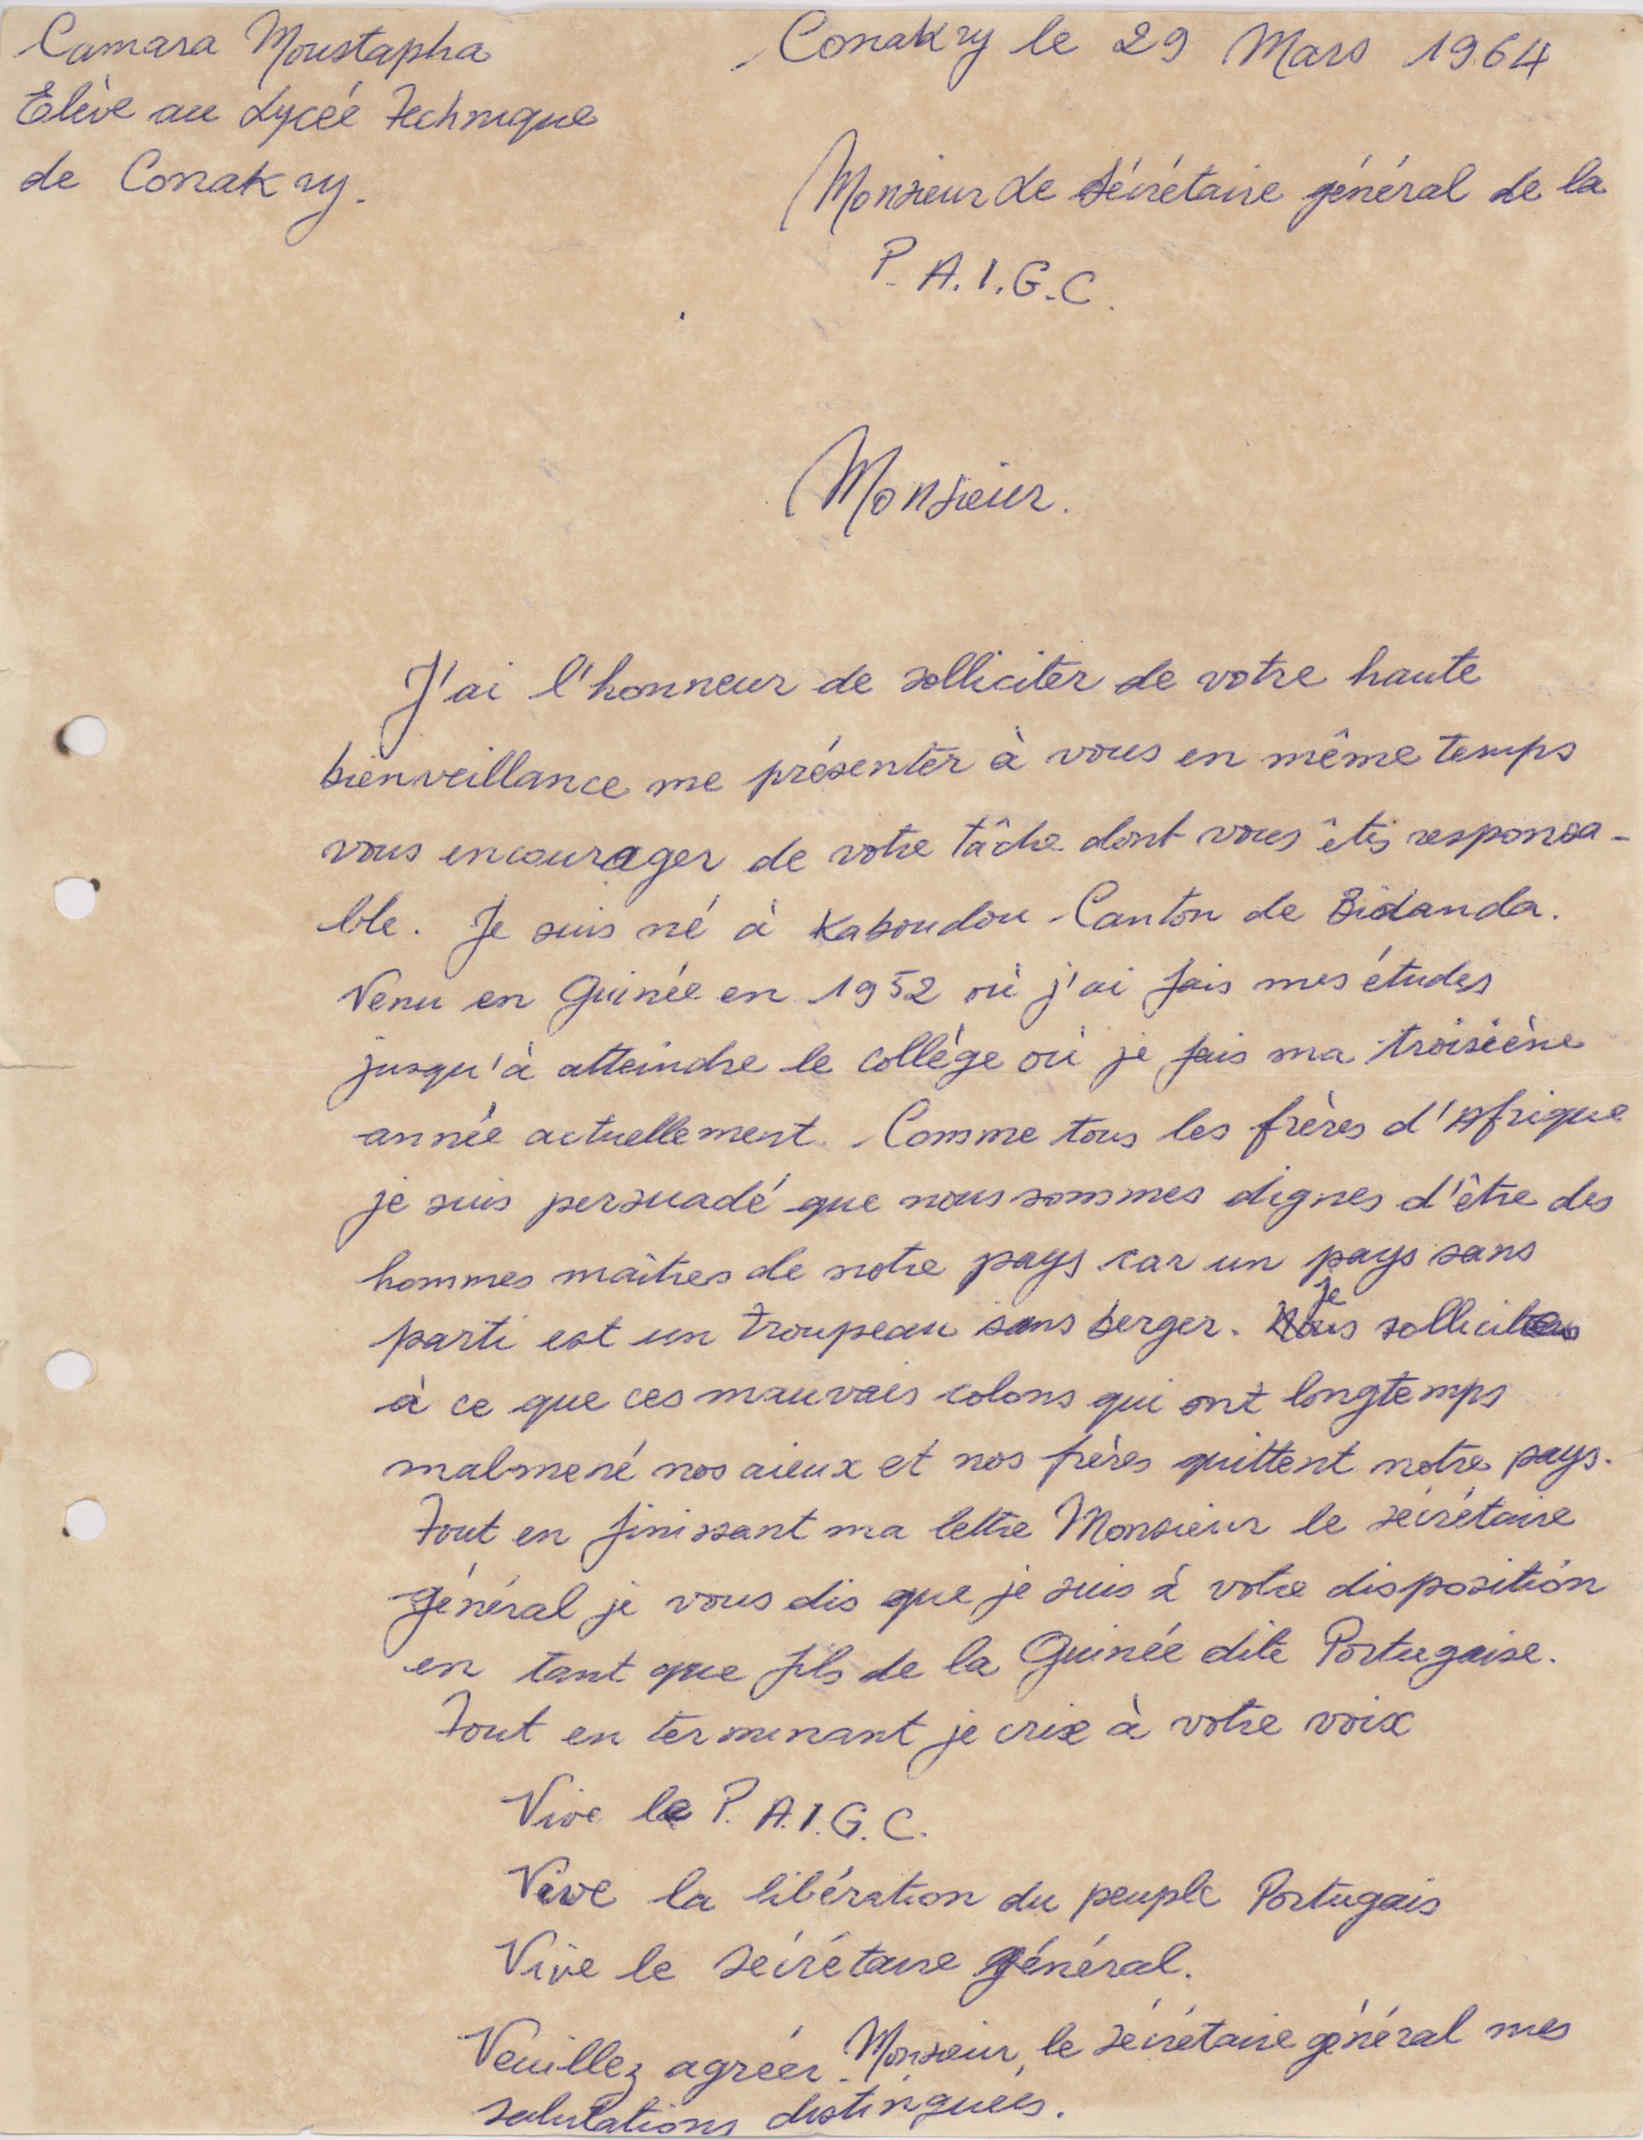 Camara Moustapha
Conakry le 29 Mars 1964
Elève au Lycée Technique
de Conakry.
Monsieur Le Sécrétaire général de la
P.A.I.G.C.
Monsieur.
J'ai l'honneur de solliciter de votre haute
bienveillance me présenter à vous en même temps
vous encourager de votre tâche dont vous êtes responsa-
ble. Je suis né à Kaboudou - Canton de Bidanda.
Venu en Guinée en 1952 où j'ai fais mes études
jusqu'à atteindre le collège où je fais ma troisiène
année actuellement. Comme tous les frères d'Afrique
je suis persuadé que nous sommes dignes d'être des
hommes maîtres de notre pays car un pays sans
parti est un troupeau sans berger. Je sollicite
à ce que ces mauvais colons qui ont longtemps
malmené nos aieux et nos frères quittent notre pays.
Tout en finissant ma lettre Monsieur le sécrétaire
général je vous dis que je suis à votre disposition
en tant que fils de la Guinée dite Portugaise.
Tout en terminant je crie à votre voix
Vive le P.A.I.G.C.
Vive la libération du peuple Portugais
Vive le sécrétaire général.
Veuillez agréer Monsieur le sécrétaire général mes
salutations distinguées.